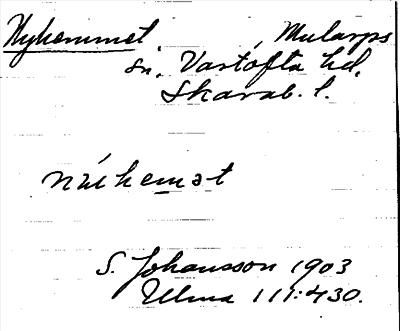 Nyhemmet Mularps
sn. Vartofta hd.
Skarab. l.
nấi hemət
S. Johansson 1903
Ulma 111:430.